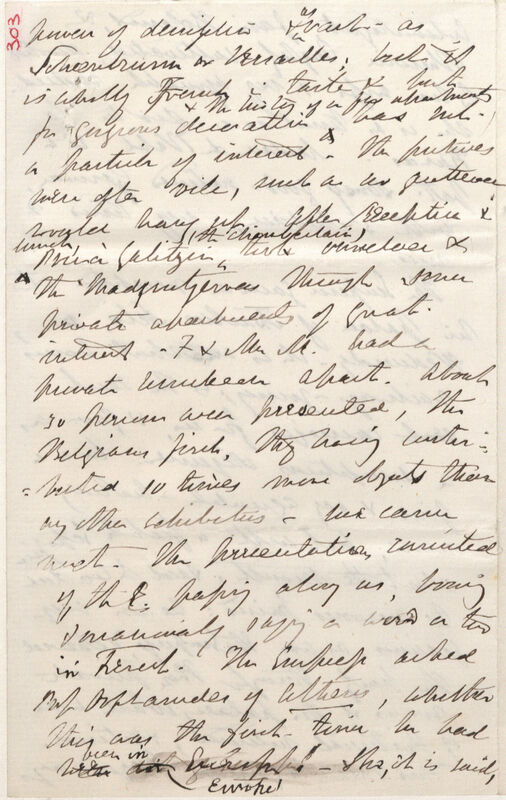 303
power of description & vast - as
Schoenbrunn or Versailles; but it
is wholly French in taste & but
& the history of a few apartments
for gorgeous decoration has not
a particle of interest. The pictures
were often vile, such as no gentleman
would hang up. After reception &
lunch (the Chamberlain)
Prince Galitzin, took ourselves &
the through some
private apartments of great
interest - F & Mrs M. had a
private luncheon apart. About
30 persons were presented, the
Belgians first, they having contri-
-buted 10 times more objects than
any other exhibitors - we came
next. The presentations consisted
of the E. passing along us, bowing
& occasionally saying a word or two
in French. The Empress asked
Prof of Athens, whether
this was the first time he had
been in
Europe!! - She, it is said,
Europe!